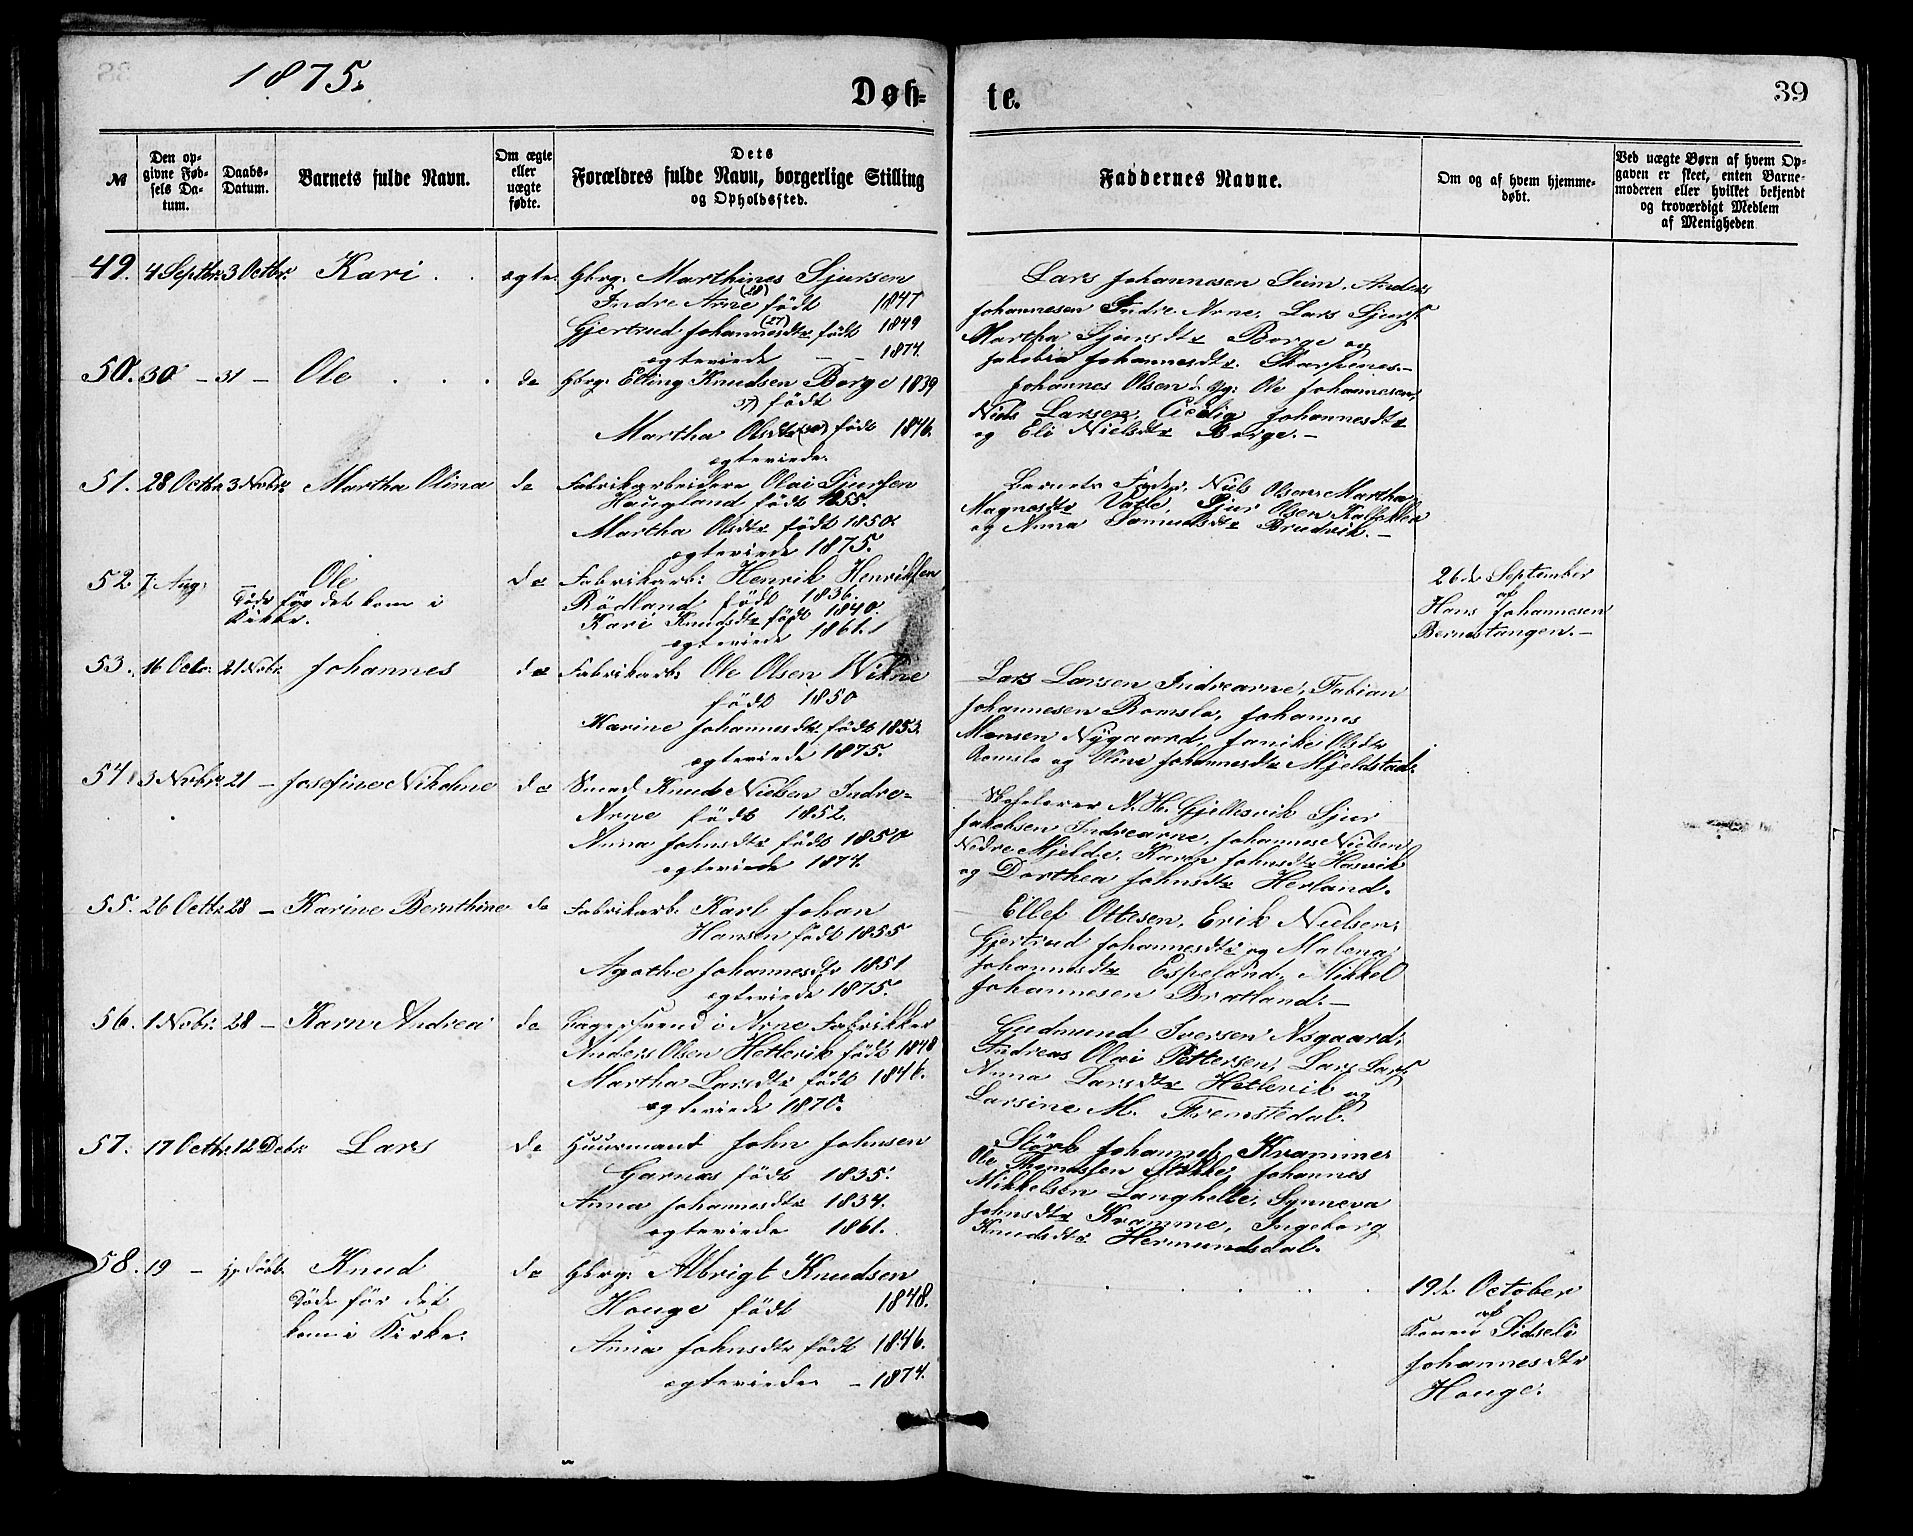 1875.
Døb=
te.
39
№
Den op-
givne Fød-
sels Da-
tum.
Daabs-
Datum.
Barnets fulde Navn.
Om ægte
eller
uægte
fødte.
Dets
Forældres fulde Navn, borgerlige Stilling
og Opholdssted.
Faddernes Navne.
Om og af hvem hjemme-
døbt.
Ved uægte Børn af hvem Op-
gaven er skeet, enten Barne-
moderen eller hvilket bekjendt
og troværdigt Medlem
af Menigheden
49. 4 Septbr. 3 Octbr. Kari . . ægte. Gbrg. Marthines Sjursen
Indre Arne (28) født 1847
Gjertrud Johannesdtr (27) født 1849
egteviede — — 1874.
Lars Johannesen Seim, Anders
Johannesen Indre Arne, Lars Sjurs.
Martha Sjursdtr Borge og
Jakobia Johannesdtr. Skarpenes.—
50. 30 — 31 — Ole . . . do Gbrg. Elling Knudsen Borge 1839
37) født
Martha Olsdtr (30) født 1846.
egteviede.
Johannes Olsen, Yg. Ole Johannesen,
Niels Larsen, Cecilia Johannesdtr
og Eli Nielsdtr Borge.—
51. 28 Octbr 3 Novbr. Martha Olina do Fabrikarbeidere Olai Sjursen
Haugland født 1855.
Martha Olsdtr født 1850
egteviede 1875.
Barnets Fader, Niels Olsen, Martha
Magnesdtr Vatle, Sjur Olsen Kalsekleu
og Anna Samuelsdtr Brudvik.—
52. 7 Aug. — Ole do Fabrikarb: Henrik Henriksen
Døde før det kom i
Kirke.
Rödland født 1836.
Kari Knudsdtr født 1840.
egteviede 1861.
26de September
af
Hans Johannesen
Bernestangen.—
53. 16 Octo. 21 Novbr Johannes do Fabrikarb: Ole Olsen Wikne
født 1850
Karine Johannesdtr født 1853.
egteviede 1875.
Lars Larsen Indrearne, Fabian
Johannesen Romslo, Johannes
Monsen Nygaard, Janike Olsdtr
Romslo og Oline Johannesdtr Mjeldstad.
54. 3 Novbr. 21 — Josefine Nikoline do Smed Knud Nielsen Indre=
Arne født 1852.
Anna Johnsdtr født 1850
egteviede 1874.
N. H. Gjellesvik Sjur
Jakobsen Indrearne, Johannes Nielsen
Nedre Mjelde, Karen Johnsdtr Hausvik
og Dorthea Johnsdtr Herland.
55. 26 Octbr. 28 — Karine Bernthine do Fabrikarb. Karl Johan
Hansen født 1855
Agathe Johannesdr 1851
egteviede 1875.
Ellef Ottesen, Erik Nielsen,
Gjertrud Johannesdtr og Malena
Johannesdtr Espeland, Mikkel
Johannesen Bratland.—
56. 1 Nobr. 28 — Karn Andrea do Lagersvend i Arne Fabrikker
Anders Olsen Hetlevik født 1848
Martha Larsdtr født 1846.
egteviede 1870.
Gudmund Iversen Aasgaard,
Andreas Olai Pettersen, Lars Lars.
Anna Larsdtr Hetlevik og
Larsine M. Fremstedal.
57. 17 Octbr. 12 Debr. Lars do Huusmand John Johnsen
Garnæs født 1835.
Anna Johannesdtr 1834.
egteviede 1861.
Störk Johannes. Kramme,
Ole Thomassen Flokke, Johannes
Mikkelsen Langhelle, Synneva
Johnsdtr Kramme, Ingeborg
Knudsdtr Hermundsdal.
58. 19 — Hj. døbt. Knud do Gbrg: Albrigt Knudsen
Døde før det
kom i Kirke.
Houge født 1848.
Anna Johnsdtr født 1846.
egteviede — 1874.
19de October
af
Konen Sidseli
Johannesdtr
Houge.